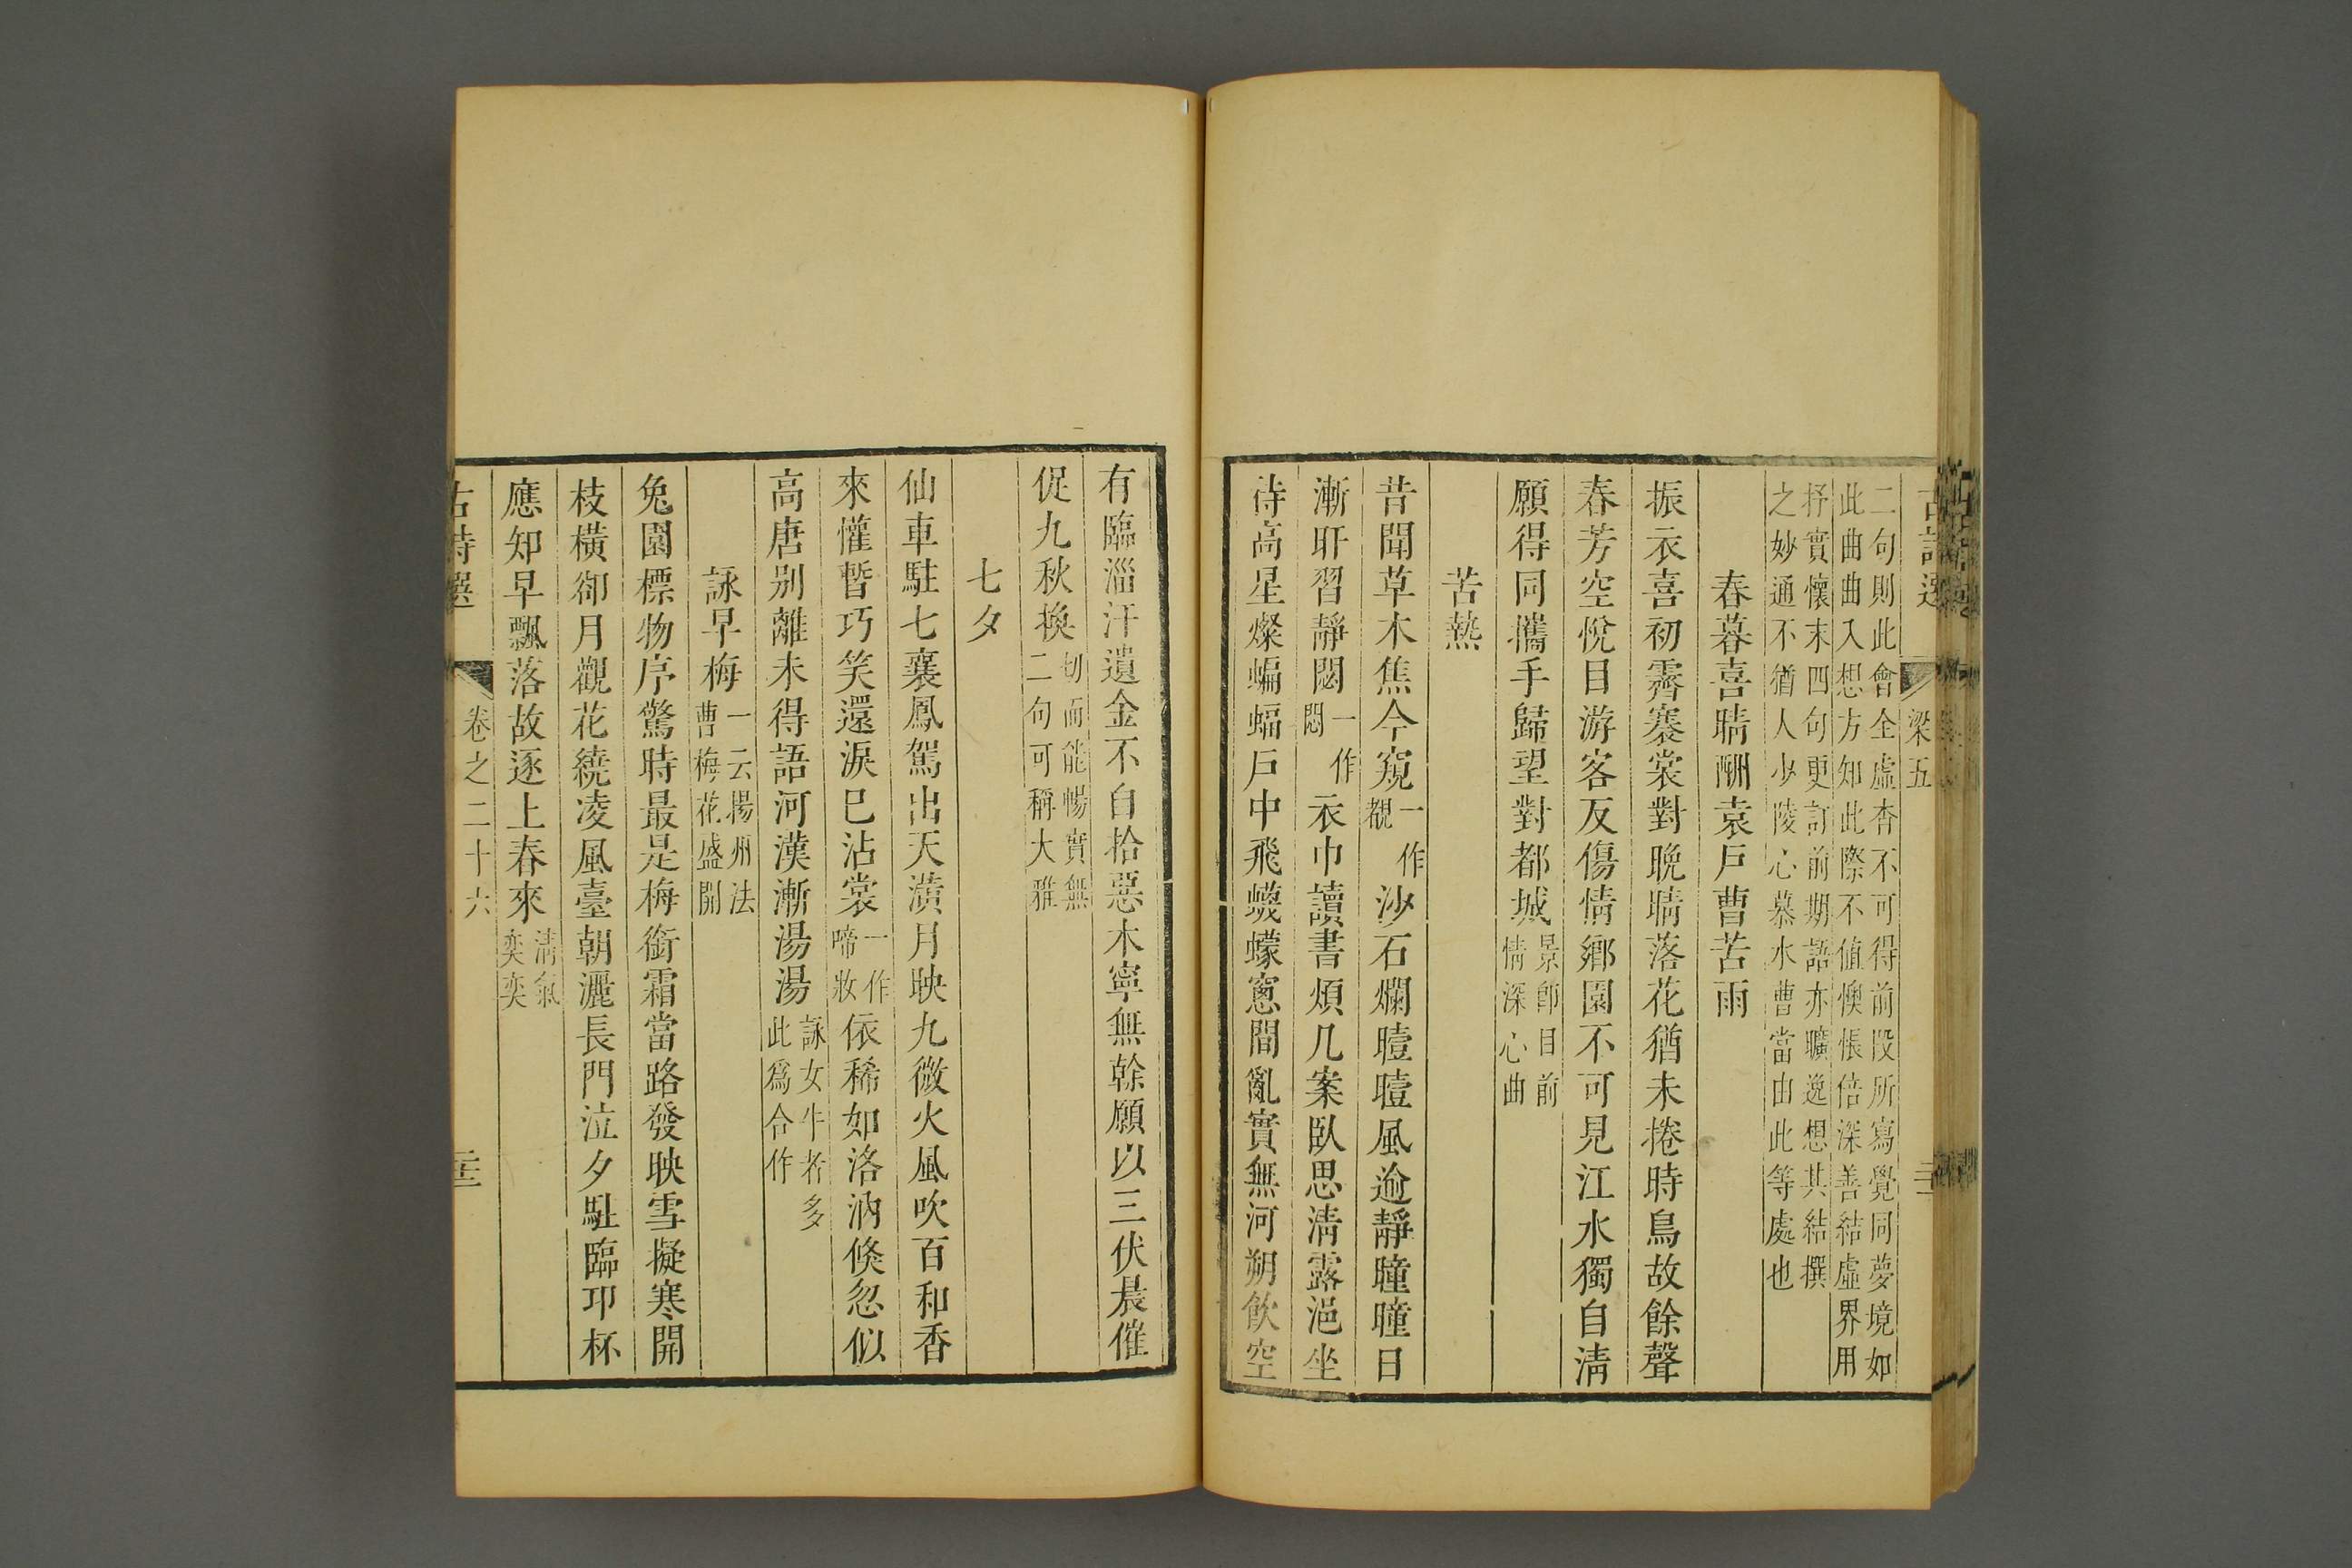 古詩選 梁五
二句則此會全虛杳不可得前段所寫覺同夢境如
此曲曲入想方知此際不值懊悵倍深善結虛界用
抒實懷末四句更訂前期語亦曠逸想其結撰
之妙通不猶人少陵心慕水曹當由此等處也
春暮喜晴酬袁戶曹苦雨
振衣喜初霽褰裳對晚晴落花猶未捲時鳥故餘聲
春芳空悅目游客反傷情鄉園不可見江水獨自淸
願得同攜手歸望對都城景卽目前情深心曲
苦熱
昔聞草木焦今窺一作觀沙石爛曀曀風逾靜曈曈日
漸旰習靜閟一作悶衣巾讀書煩几案臥思淸露浥坐
待高星燦蝙蝠戶中飛蠛蠓窻間亂實無河朔飲空
有臨淄汗遺金不自拾惡木寧無榦願以三伏晨催
促九秋換切而能暢實無二句可稱大雅
七夕
仙車駐七襄鳳駕出天潢月映九微火風吹百和香
來懽暫巧笑還淚巳沾裳一作啼妝依稀如洛汭倏忽似
高唐別離未得語河漢漸湯湯詠女牛者多此爲合作
詠早梅一云揚州法曹梅花盛開
兔園標物序驚時最是梅銜霜當路發映雪擬寒開
枝橫卻月觀花繞凌風臺朝灑長門泣夕駐臨卭杯
應知早飄落故逐上春來淸氣奕奕
古詩選 卷之二十六